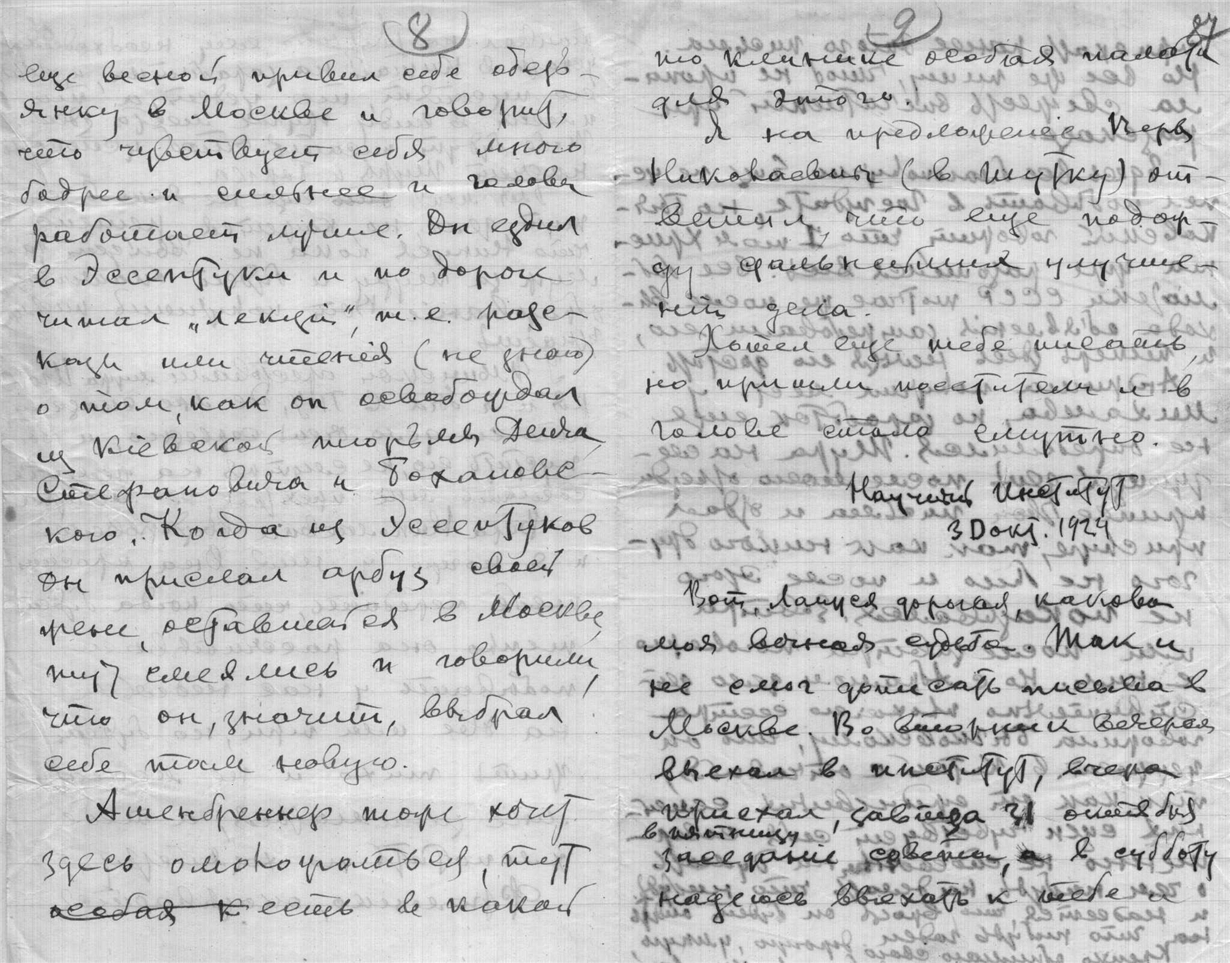 8
еще весной привил себе обезь-
янку в Москве и говорит,
что чувствует себя много
бодрее и сильнее и голова
работает лучше. Он ездил
в Эссентуки и по дороге
читал „лекции", т. е.
или чтения (не знаю)
о том, как он освобождал
из Кіевской тюрьмы Дейча
Стефановича и Бохановс-
кого. Когда из Эссентуков
он прислал арбуз своей
жене, оставшейся в Москве,
тут смеялись и говорили,
что он, значит, выбрал
себе там новую.
Ашенбреннер тоже хочет
здесь омолодиться, тут
особая к есть в какой
9
87
то клинике особая палата
для этого.
Я на предложение Веры
Николаевны (в шутку) от-
ветил, что еще подож-
ду дальнейших улучше-
ний дела.
Хотел еще тебе писать,
но пришли посетители и в
голове стало смутно.
Научный Институт
30 окт. 1924
Вот, Лапуся дорогая, какова
моя вечная судьба. Так и
не смог дописать письма в
Москве. Во вторник вечером
выехал в институт, вчера
приехал, завтра 31 октября
в пятницу
заседание совета, а в субботу
надеюсь выехать к тебе и